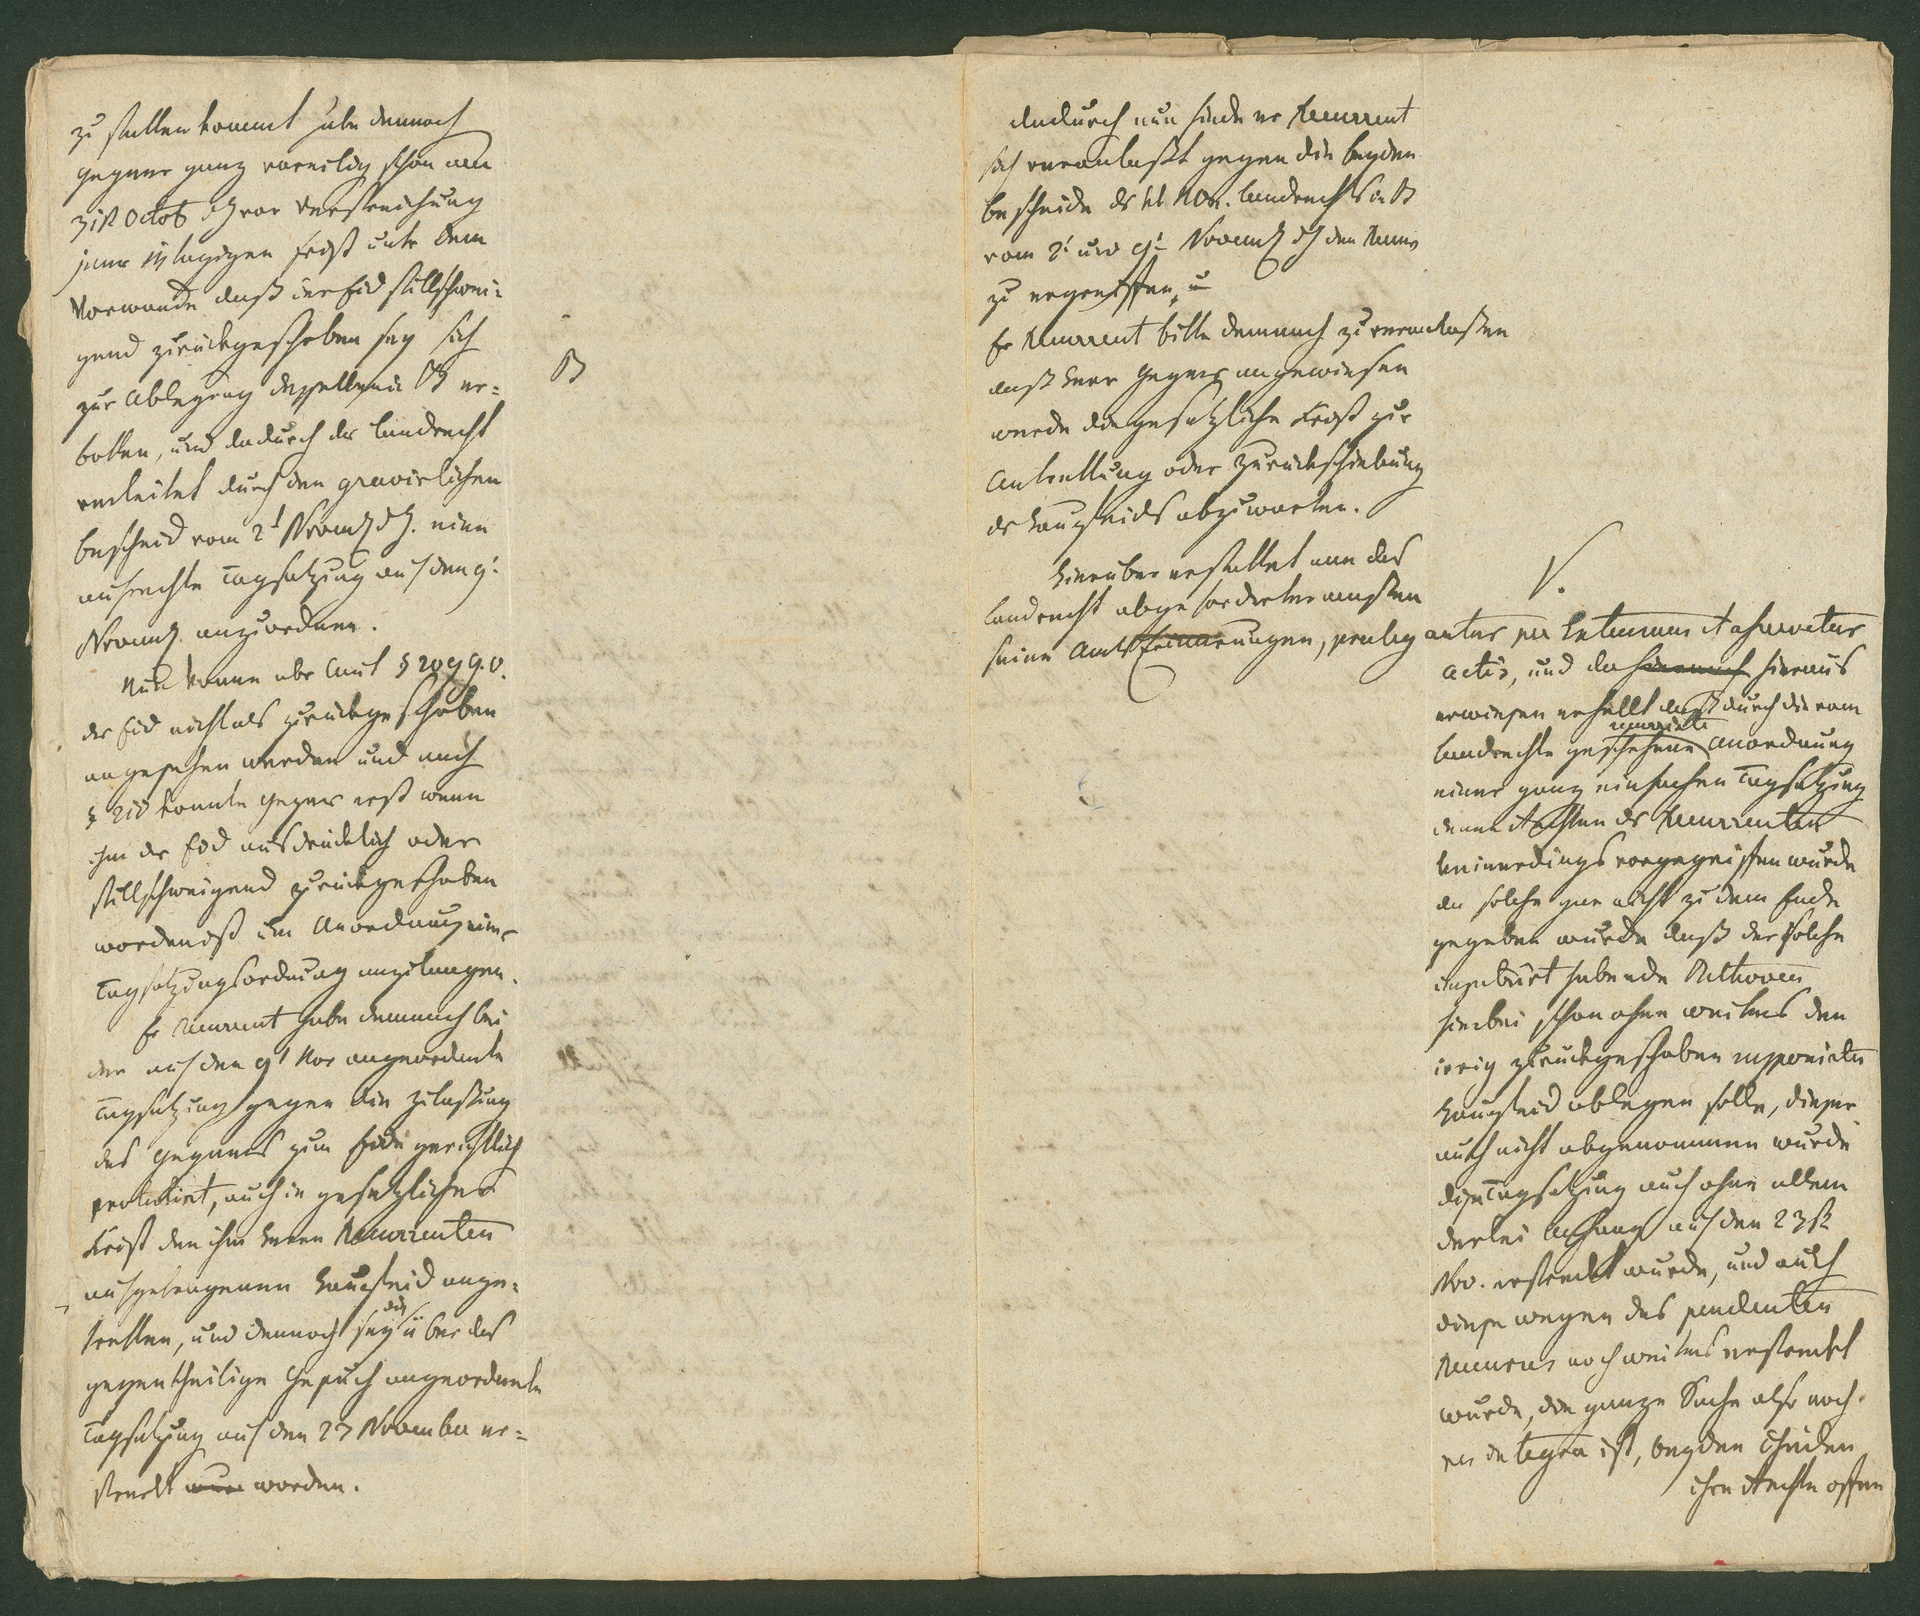 zu statten kommt habe dennoch
Gegner ganz voreilig schon am
31st Octob dJ vor Verstreichung
jener 14 tagigen Frist unter dem
Vorwande daß der Eid stillschwei-
gend zurückgeschoben sey sich
zur Ablegung desselben B er-
B
botten, und dadurch das Landrecht
verleitet durch den gravirlichen
Bescheid vom 2t Novemb dJ. eine
aufrechte Tagsatzung auf den 9t
Novemb anzuordnen.
Nun könne aber laut § 209 G.O.
der Eid nicht als zurückgeschoben
angesehen werden und nach
§ 210 konnte Gegner erst wenn
ihm der Eid ausdrücklich oder
stillschweigend zurückgeschoben
worden ist um Anordnung einer
Tagsatzungsordnung anzulangen.
Er Recurrent habe demnach bei
der auf den 9t Nov angeordnete
Tagsatzung gegen die Zulaßung
des Gegners zum Eide gerichtlich
protestirt, auch in gesetzlicher
Frist den ihm Herrn Recurrenten
aufgetragenen Haupteid ange-
tretten, und dennoch sey die über das
gegentheilige Gesuch angeordnete
Tagsatzung auf den 23 November er-
streckt wur worden.
dadurch nun finde er Recurrent
sich veranlaßt gegen die beyden
Bescheide des kk NÖst. Landrechts
vom 2t und 9t Novemb dJ den Recurs
zu ergreiffen, u
Er Recurrent bitte demnach zu veranlaßen
daß Herr Gegner angewiesen
werde die gesetzliche Frist zur
Antrettung oder Zurückschiebung
des Haupteids abzuwarten.
Hierüber erstattet nun das
Landrecht abgefordertermaßen
seine Amtserinnerungen, praelegantur per Extensum et asservetur
V.
actis, und da hiernach hieraus
erwiesen erhellt daß durch die vom
Landrechte geschehene recurrirte Anordnung
einer ganz einfachen Tagsatzung
denen Rechten des Recurrenten
keinerdings vorgegriffen wurde
da solche gar nicht zu dem Ende
gegeben wurde daß der solche
angesucht habende Bethoven
hierbei schon ohne weiters den
irrig zurückgeschoben supponirten
Haupteid ablegen solle, dieser
auch nicht abgenommen wurde
diese Tagsatzung auch ohne allem
derlei Anhang auf den 23st
Nov. erstreckt wurde, und auch
diese wegen des pendenten
Recurses noch weiters erstreckt
wurde, die ganze Sache also noch
res integra ist, beyden Theilen
ihre Rechte offen